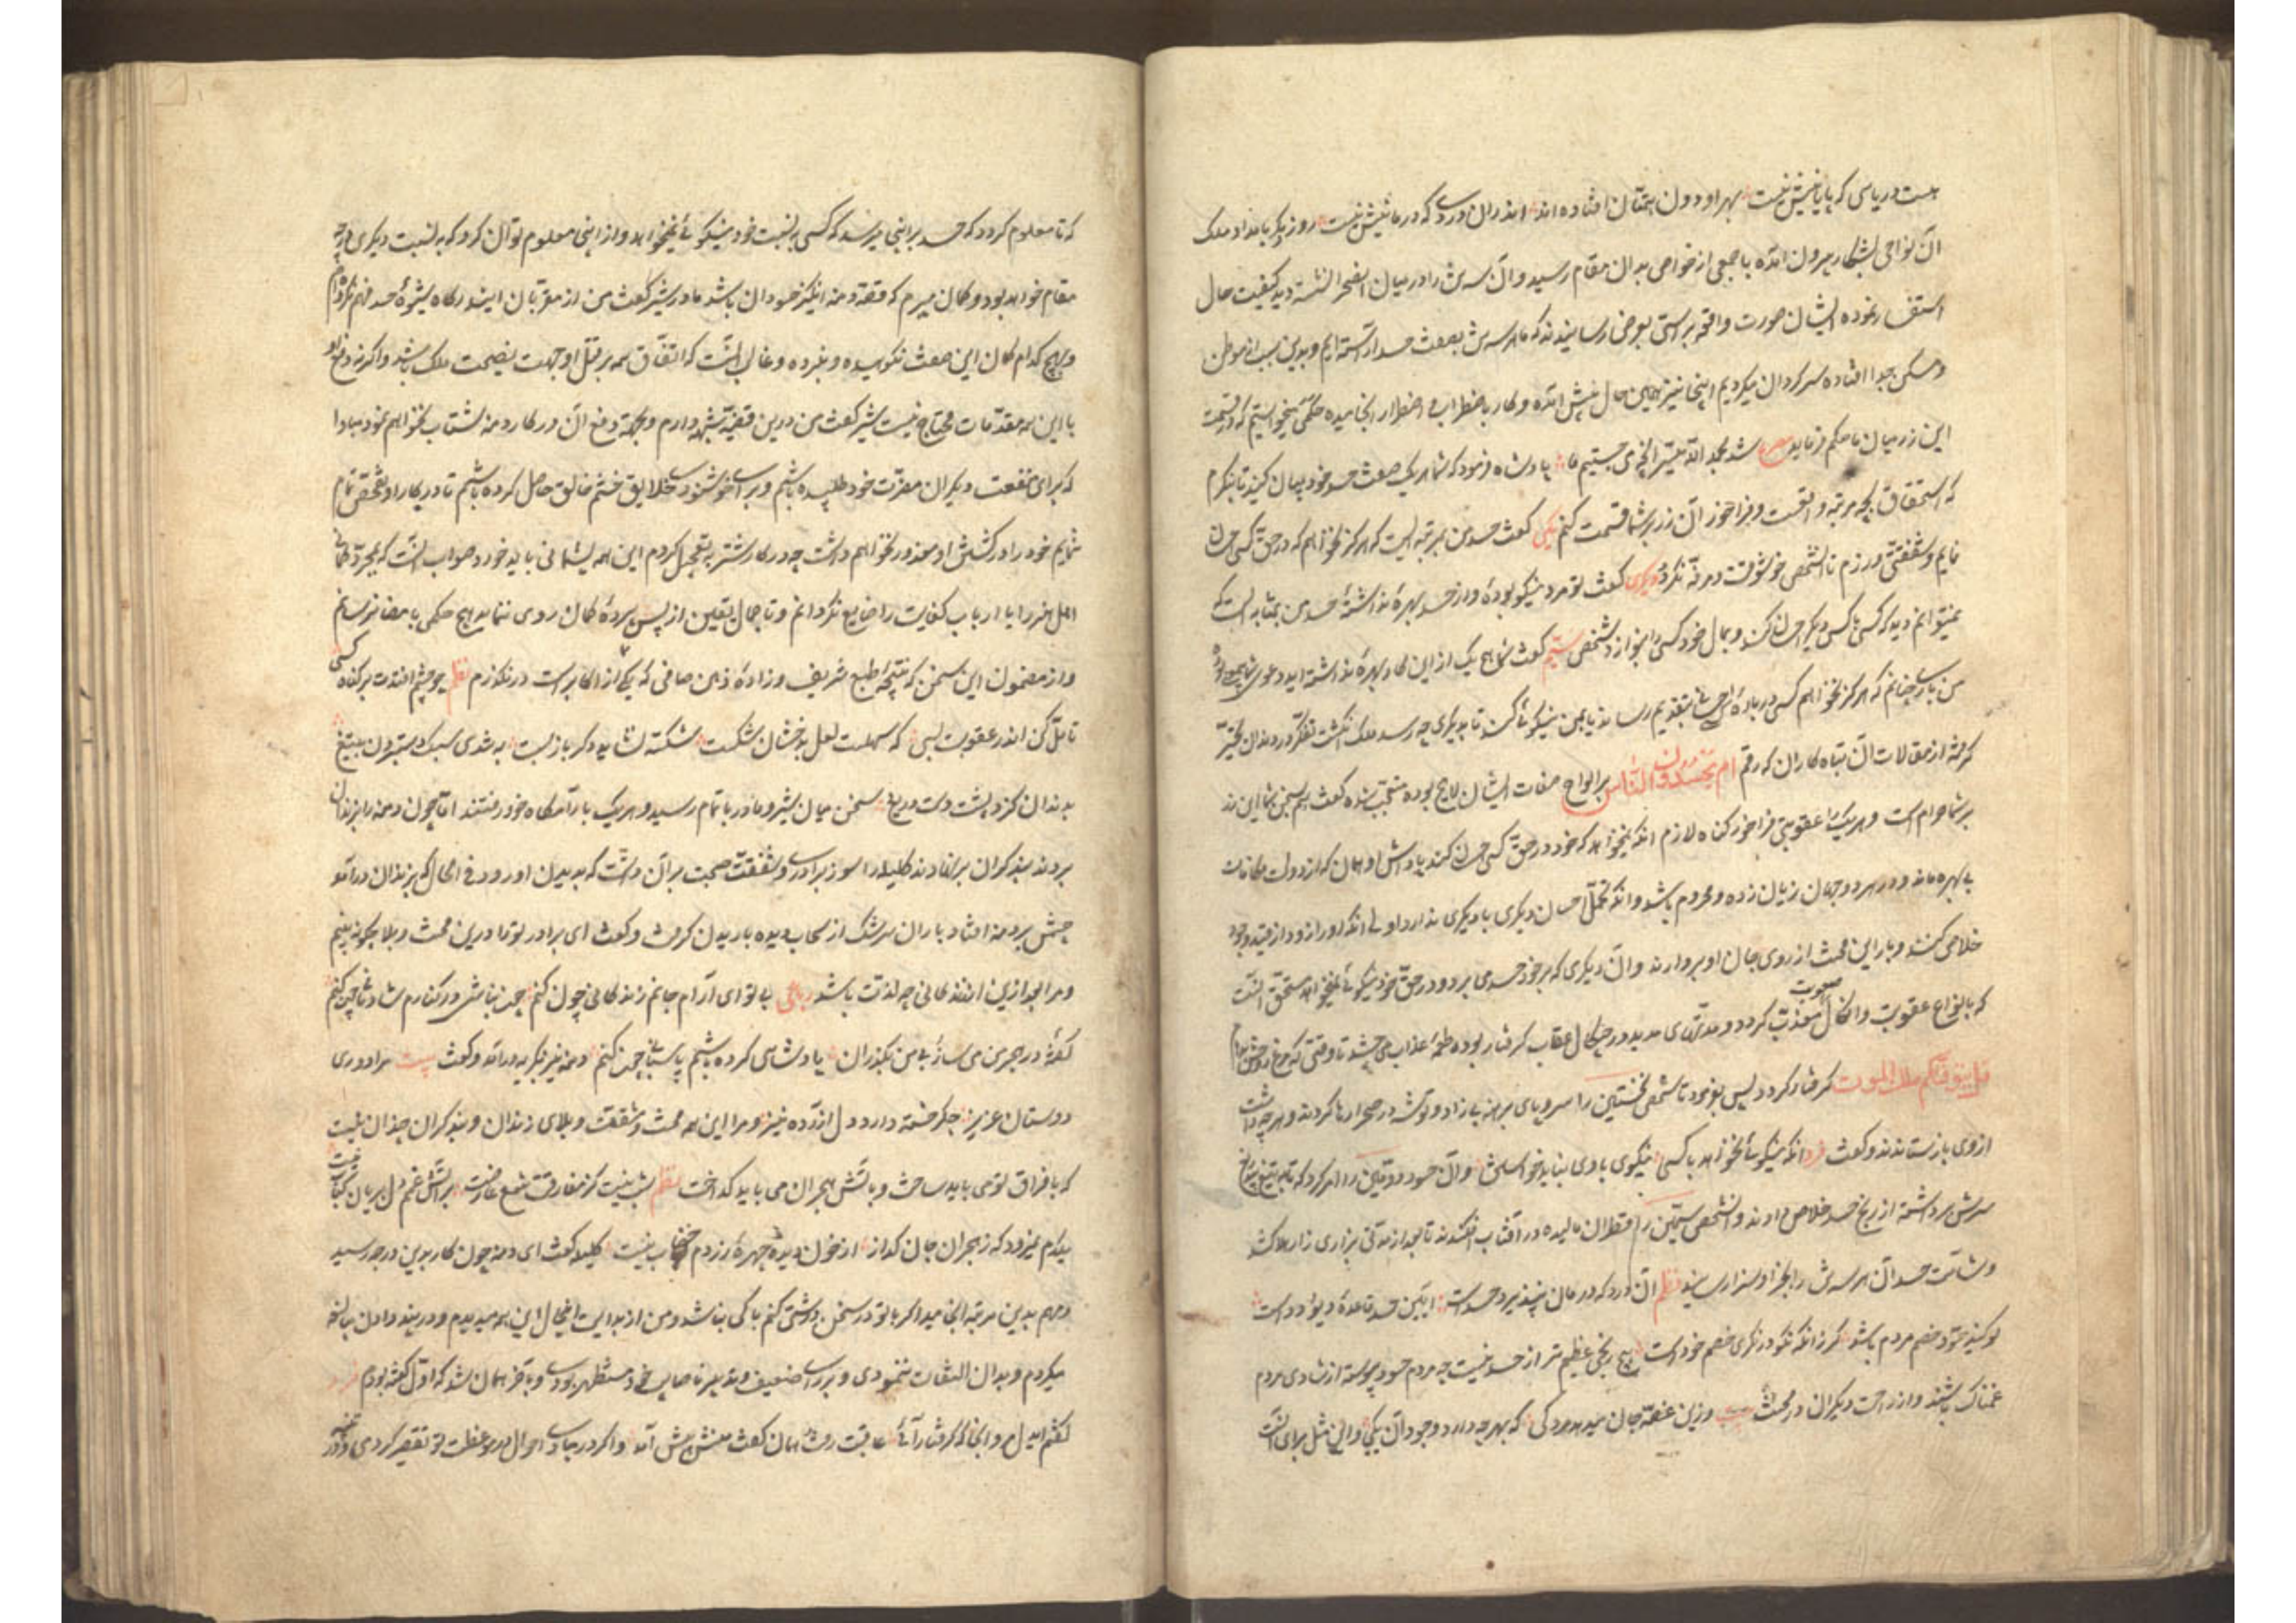 هست دریایی که پایانیش نیست بهر او دون همتان افتاده اند اندران دردی که درمانیش نیست روز دیگر بامداد ملک
آن نواحی بشکار بیرون آمده با جمعی از خواص بدان مقام رسید و آن سه تن را در میان صحرا نشسته دید کیفیت حال
استفسار نموده ایشان صورت واقعه براستی بعرض رسانیدند که ما هر سه تن بصفت حسد آراسته ایم و بدین سبب از موطن
و مسکن جدا افتاده سرگردان میگردیم اینجا نیز همین حال پیش آمده و کار باضطراب و اضطرار انجامیده حکمی میخواستیم که در قسمت
این زر میان ما حکم فرماید مصرع شد بحمد الله میسر آنچه می جستیم ما پادشاه فرمود که شما هر یک صفت حسد خود بیان کنید تا بنگرم
که استحقاق بچه مرتبه واقعست و فراخور آن زر بر شما قسمت کنم یکی گفت حسد من بمرتبه ایست که هرگز نخواهم که در حق کسی احسان
نمایم و شفقتی ورزم تا آن شخص خوشوقت و مرفه نگردد دیگری گفت تو مرد نیکو بوده و از حسد بهره نداشته حسد من بمثابه ایست که
نمیتوانم دید که کسی با کسی دیگر احسان کند و بمال خود کسی را بنوازد شخص سیم گفت شما هیچ یک از این کار بهره نداشته اید و دعوی
من باری چنانم که هرگز نخواهم کسی در باره من احسانی بتقدیم رساند یا بمن نیکوئی کند تا بدیگری چه رسد ملک انگشت تفکر در دندان تحیر
گرفته از مقالات آن تباه کاران که رقم ام یحسدون الناس بر الواح صفات ایشان لایح بوده متعجب شده گفت هم بسخن شما این زر
بر شما حرام است و هر یک را عقوبتی فراخور گناه لازم آنکه نمیخواهد که خود در حق کسی احسان کند پاداش او همان که از دولت مکافات
بی بهره ماند و در هر دو جهان زیان زده و محروم باشد و آنکه تحمل احسان دیگری با دیگری ندارد اولی آنکه او را زود از قید وجود
خلاصی کنند و بار این محنت از روی جان او بردارند و آن دیگری که بر خود حسد می برد و در حق خود نیکوئی نمیخواهد مستحق آنست
که بانواع عقوبت و انکال صعوبت معذب گردد و مدتهای مدید در چنگال عقاب گرفتار بوده طعمه عذاب می چشد تا وقتی که مرغ روحش بدام
قل یتوفیکم ملک الموت گرفتار گردد پس بفرمود تا شخص نخستین را سر و پای برهنه بی زاد و توشه در صحرا رها کردند و هر چه داشت
از وی بازستاندند و گفت فرد آنکه نیکوئی نخواهد با کسی نیکوی با وی نباید خواستن و آن حسود دومین را امر کرد که تا به تیغ بیدریغ
سرش برداشته از رنج حسد خلاص دادند و آن شخص سیمین را قطران مالیده در آفتاب افکندند تا بعد از مدتی بزاری زار هلاک شد
و شآمت حسد آن هر سه تن را بجزا و سزا رسانید نظم آن درد که درمان نپذیرد حسد است آیین حسد قاعده دیو و دد است
گویند حسود خصم مردم باشد گر زانکه نکو درنگری خصم خود است هیچ رنجی عظیم تر از حسد نیست چه مردم حسود پیوسته از شادی مردم
غمناک باشند و از راحت دیگران در محنت بیت وزین غصه جان میدهد مردکی که بهر چه دارد وجود آن یکی و این مثل برای آنست
که تا معلوم گردد که حسد بر اینجا میرسد که کسی بنسبت خود نیکوئی نمیخواهد و از اینجا معلوم توان کرد که به نسبت دیگری در چه
مقام خواهد بود و گمان میبرم که قصه دمنه انگیز حسودان باشد مادر شیر گفت من از مقربان این درگاه شیوه حسد فهم نکرده ام
و هیچ کدام گمان این صفت نکوهیده نبرده و غالب آنست که اتفاق همه بر قتل او جهت نصیحت ملک باشد و اگر نه دفع او
با این همه مقدمات محتاج نیست شیر گفت من درین قضیه شبهه دارم و بجهت دفع آن در کار دمنه شتاب نخواهم نمود مبادا
که برای منفعت دیگران مضرت خود طلبیده باشم و برای خوشنودی خلایق خشم خالق حاصل کرده باشم تا در کار او تفحص تمام
نمایم خود را در کشتن او معذور نخواهم داشت چه در کار شتربه تعجیل کردم این همه پشیمانی باید خورد صواب آنست که بمجرد گمان
اهل هنر را یا ارباب کفایت را ضایع نگردانم و تا جمال یقین از پس پرده گمان روی ننماید هیچ حکمی بامضا نرسانم
و از مضمون این سخن که نتیجه طبع شریف و زاده ذهن صافی که یکی از اکابر است درنگذرم نظم چو چشم افتدت بر گناه کسی
تامل کن اندر عقوبت بسی که سهلست لعل بدخشان شکست شکسته نشاید دگر باز بست به تندی سبک دست بردن بتیغ
بدندان گزد پشت دست دریغ سخن میان شیر و مادر باتمام رسید و هر یک بآرامگاه خود رفتند اما چون دمنه را بزندان
بردند بند گران بر نهادند کلیله را سوز برادری و شفقت صحبت بر آن داشت که بدیدن او رود فی الحال که بزندان درآمد
چشمش بر دمنه افتاد باران سرشک از سحاب دیده باریدن گرفت و گفت ای برادر ترا درین محنت و بلا چگونه بینم
و مرا بعد ازین از زندگانی چه لذت باشد رباعی بی تو ای آرام جانم زندگانی چون کنم چون نباشی در کنارم شادمانی چون کنم
گفته در هجر من می ساز بی من بگذران پادشاهی کرده باشم پاسبانی چون کنم دمنه نیز بگریه درآمد و گفت بیت مرا دوری
دوستان عزیز جگر خسته دارد دل آزرده نیز و مرا این همه محنت و مشقت و بلای زندان و بند گران چندان نیست
که با فراق تو می باید ساخت و بآتش هجران می باید گداخت نظم شب نیست کز مفارقتت شمع عارضت بر آتش غم دل بریان کباب نیست
یکدم نمیرود که ز هجران جان گداز از خون دیده چهره زردم خضاب نیست کلیله گفت ای دمنه چون کار بدین درجه رسید
و مهم بدین مرتبه انجامید اگر با تو در سخن درشتی کنم باکی نباشد و من از بدایت این حال این همه میدیدم و در پند دادن مبالغه
میکردم و بدان التفات ننمودی و برای ضعیف و تدبیر ناصایب خود مستظهر بودی و بآخر همان شد که اول گفته بودم
گفتم ای دل مرو آنجا که گرفتار آئی عاقبت رفت همان گفت منش پیش آمد و اگر در مبادی احوال در موعظت تو تقصیر کردمی و در